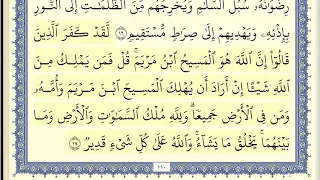 رِضْوَٰنَهُۥ سُبُلَ ٱلسَّلَٰمِ وَيُخْرِجُهُم مِّنَ ٱلظُّلُمَٰتِ إِلَى ٱلنُّورِ
بِإِذْنِهِۦ وَيَهْدِيهِمْ إِلَىٰ صِرَٰطٍ مُّسْتَقِيمٍ ١٦ لَّقَدْ كَفَرَ ٱلَّذِينَ
قَالُوٓا۟ إِنَّ ٱللَّهَ هُوَ ٱلْمَسِيحُ ٱبْنُ مَرْيَمَ ۚ قُلْ فَمَن يَمْلِكُ مِنَ
ٱللَّهِ شَيْـًٔا إِنْ أَرَادَ أَن يُهْلِكَ ٱلْمَسِيحَ ٱبْنَ مَرْيَمَ وَأُمَّهُۥ
وَمَن فِى ٱلْأَرْضِ جَمِيعًا ۗ وَلِلَّهِ مُلْكُ ٱلسَّمَٰوَٰتِ وَٱلْأَرْضِ وَمَا
بَيْنَهُمَا ۚ يَخْلُقُ مَا يَشَآءُ ۚ وَٱللَّهُ عَلَىٰ كُلِّ شَىْءٍ قَدِيرٌ ١٧
١١٠